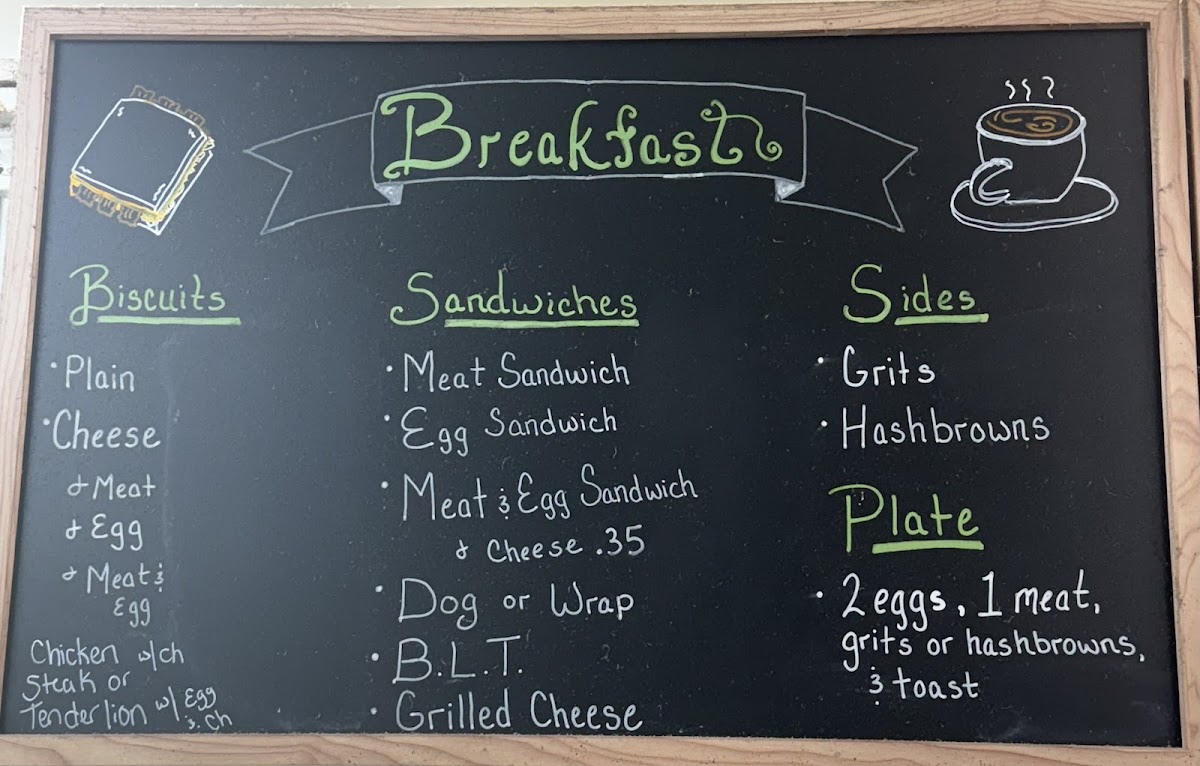 Breakfast
Biscuits
· Plain
· Cheese
& Meat
& Egg
& Meat &
Egg
Chicken w/ch
Steak or
Tenderlion w/ Egg
& ch
Sandwiches
· Meat Sandwich
· Egg Sandwich
· Meat & Egg Sandwich
& Cheese .35
· Dog or Wrap
· B.L.T.
· Grilled Cheese
Sides
· Grits
· Hashbrowns
Plate
· 2 eggs, 1 meat,
grits or hashbrowns,
& toast